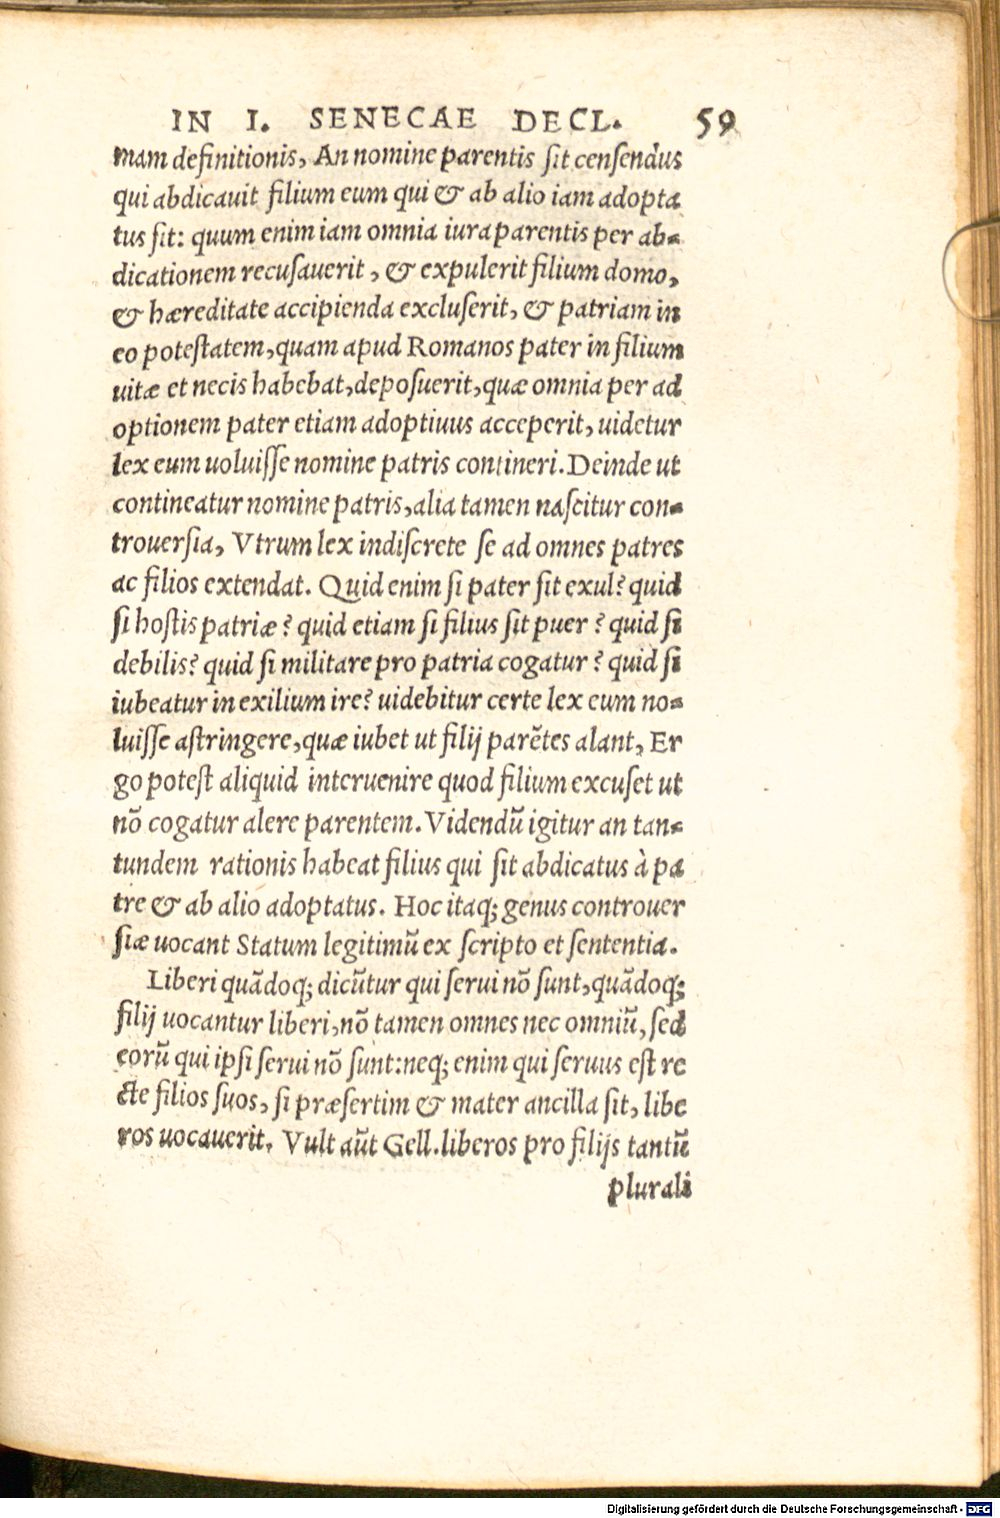 IN I. SENECAE DECL. 59
mam definitionis, An nomine parentis sit censendus
qui abdicauit filium eum qui & ab alio iam adopta
tus sit: quum enim iam omnia iura parentis per ab-
dicationem recusauerit, & expulerit filium domo,
& hæreditate accipienda excluserit, & patriam in
eo potestatem, quam apud Romanos pater in filium
uitæ et necis habebat, deposuerit, quæ omnia per ad
optionem pater etiam adoptiuus acceperit, uidetur
lex eum uoluisse nomine patris contineri. Deinde ut
contineatur nomine patris, alia tamen nascitur con-
trouersia, Vtrum lex indiscrete se ad omnes patres
ac filios extendat. Quid enim si pater sit exul? quid
si hostis patriæ? quid etiam si filius sit puer? quid si
debilis? quid si militare pro patria cogatur? quid si
iubeatur in exilium ire? uidebitur certe lex eum no-
luisse astringere, quæ iubet ut filij parẽtes alant, Er
go potest aliquid interuenire quod filium excuset ut
nõ cogatur alere parentem. Videndũ igitur an tan-
tundem rationis habeat filius qui sit abdicatus à pa
tre & ab alio adoptatus. Hoc itaq; genus controuer
siæ uocant Statum legitimũ ex scripto et sententia.
Liberi quãdoq; dicũtur qui serui nõ sunt, quãdoq;
filij uocantur liberi, nõ tamen omnes nec omniũ, sed
eorũ qui ipsi serui nõ sunt: neq; enim qui seruus est re
cte filios suos, si præsertim & mater ancilla sit, libe
ros uocauerit. Vult aũt Gell. liberos pro filijs tantũ
plurali
Digitalisierung gefördert durch die Deutsche Forschungsgemeinschaft - DFG